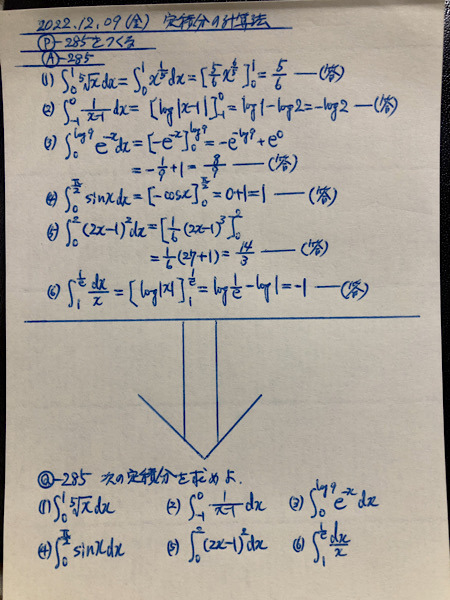 2022.12.09(金) 定積分の計算法
Ⓟ-285をつくる
Ⓐ-285
(1) ∫₀¹ ⁵√x dx = ∫₀¹ x^{1/5} dx = [5/6 x^{6/5}]₀¹ = 5/6 —(答)
(2) ∫₋₁⁰ 1/(x-1) dx = [log|x-1|]₋₁⁰ = log1-log2 = -log2 —(答)
(3) ∫₀^{log9} e^{-x} dx = [-e^{-x}]₀^{log9} = -e^{-log9} + e⁰
= -1/9 + 1 = 8/9 —(答)
(4) ∫₀^{π/2} sinx dx = [-cosx]₀^{π/2} = 0+1 = 1 —(答)
(5) ∫₀² (2x-1)² dx = [1/6 (2x-1)³]₀²
= 1/6 (27+1) = 14/3 —(答)
(6) ∫₁^{1/e} dx/x = [log|x|]₁^{1/e} = log 1/e - log1 = -1 —(答)
Ⓠ-285 次の定積分を求めよ.
(1) ∫₀¹ ⁵√x dx (2) ∫₋₁⁰ 1/(x-1) dx (3) ∫₀^{log9} e^{-x} dx
(4) ∫₀^{π/2} sinx dx (5) ∫₀² (2x-1)² dx (6) ∫₁^{1/e} dx/x